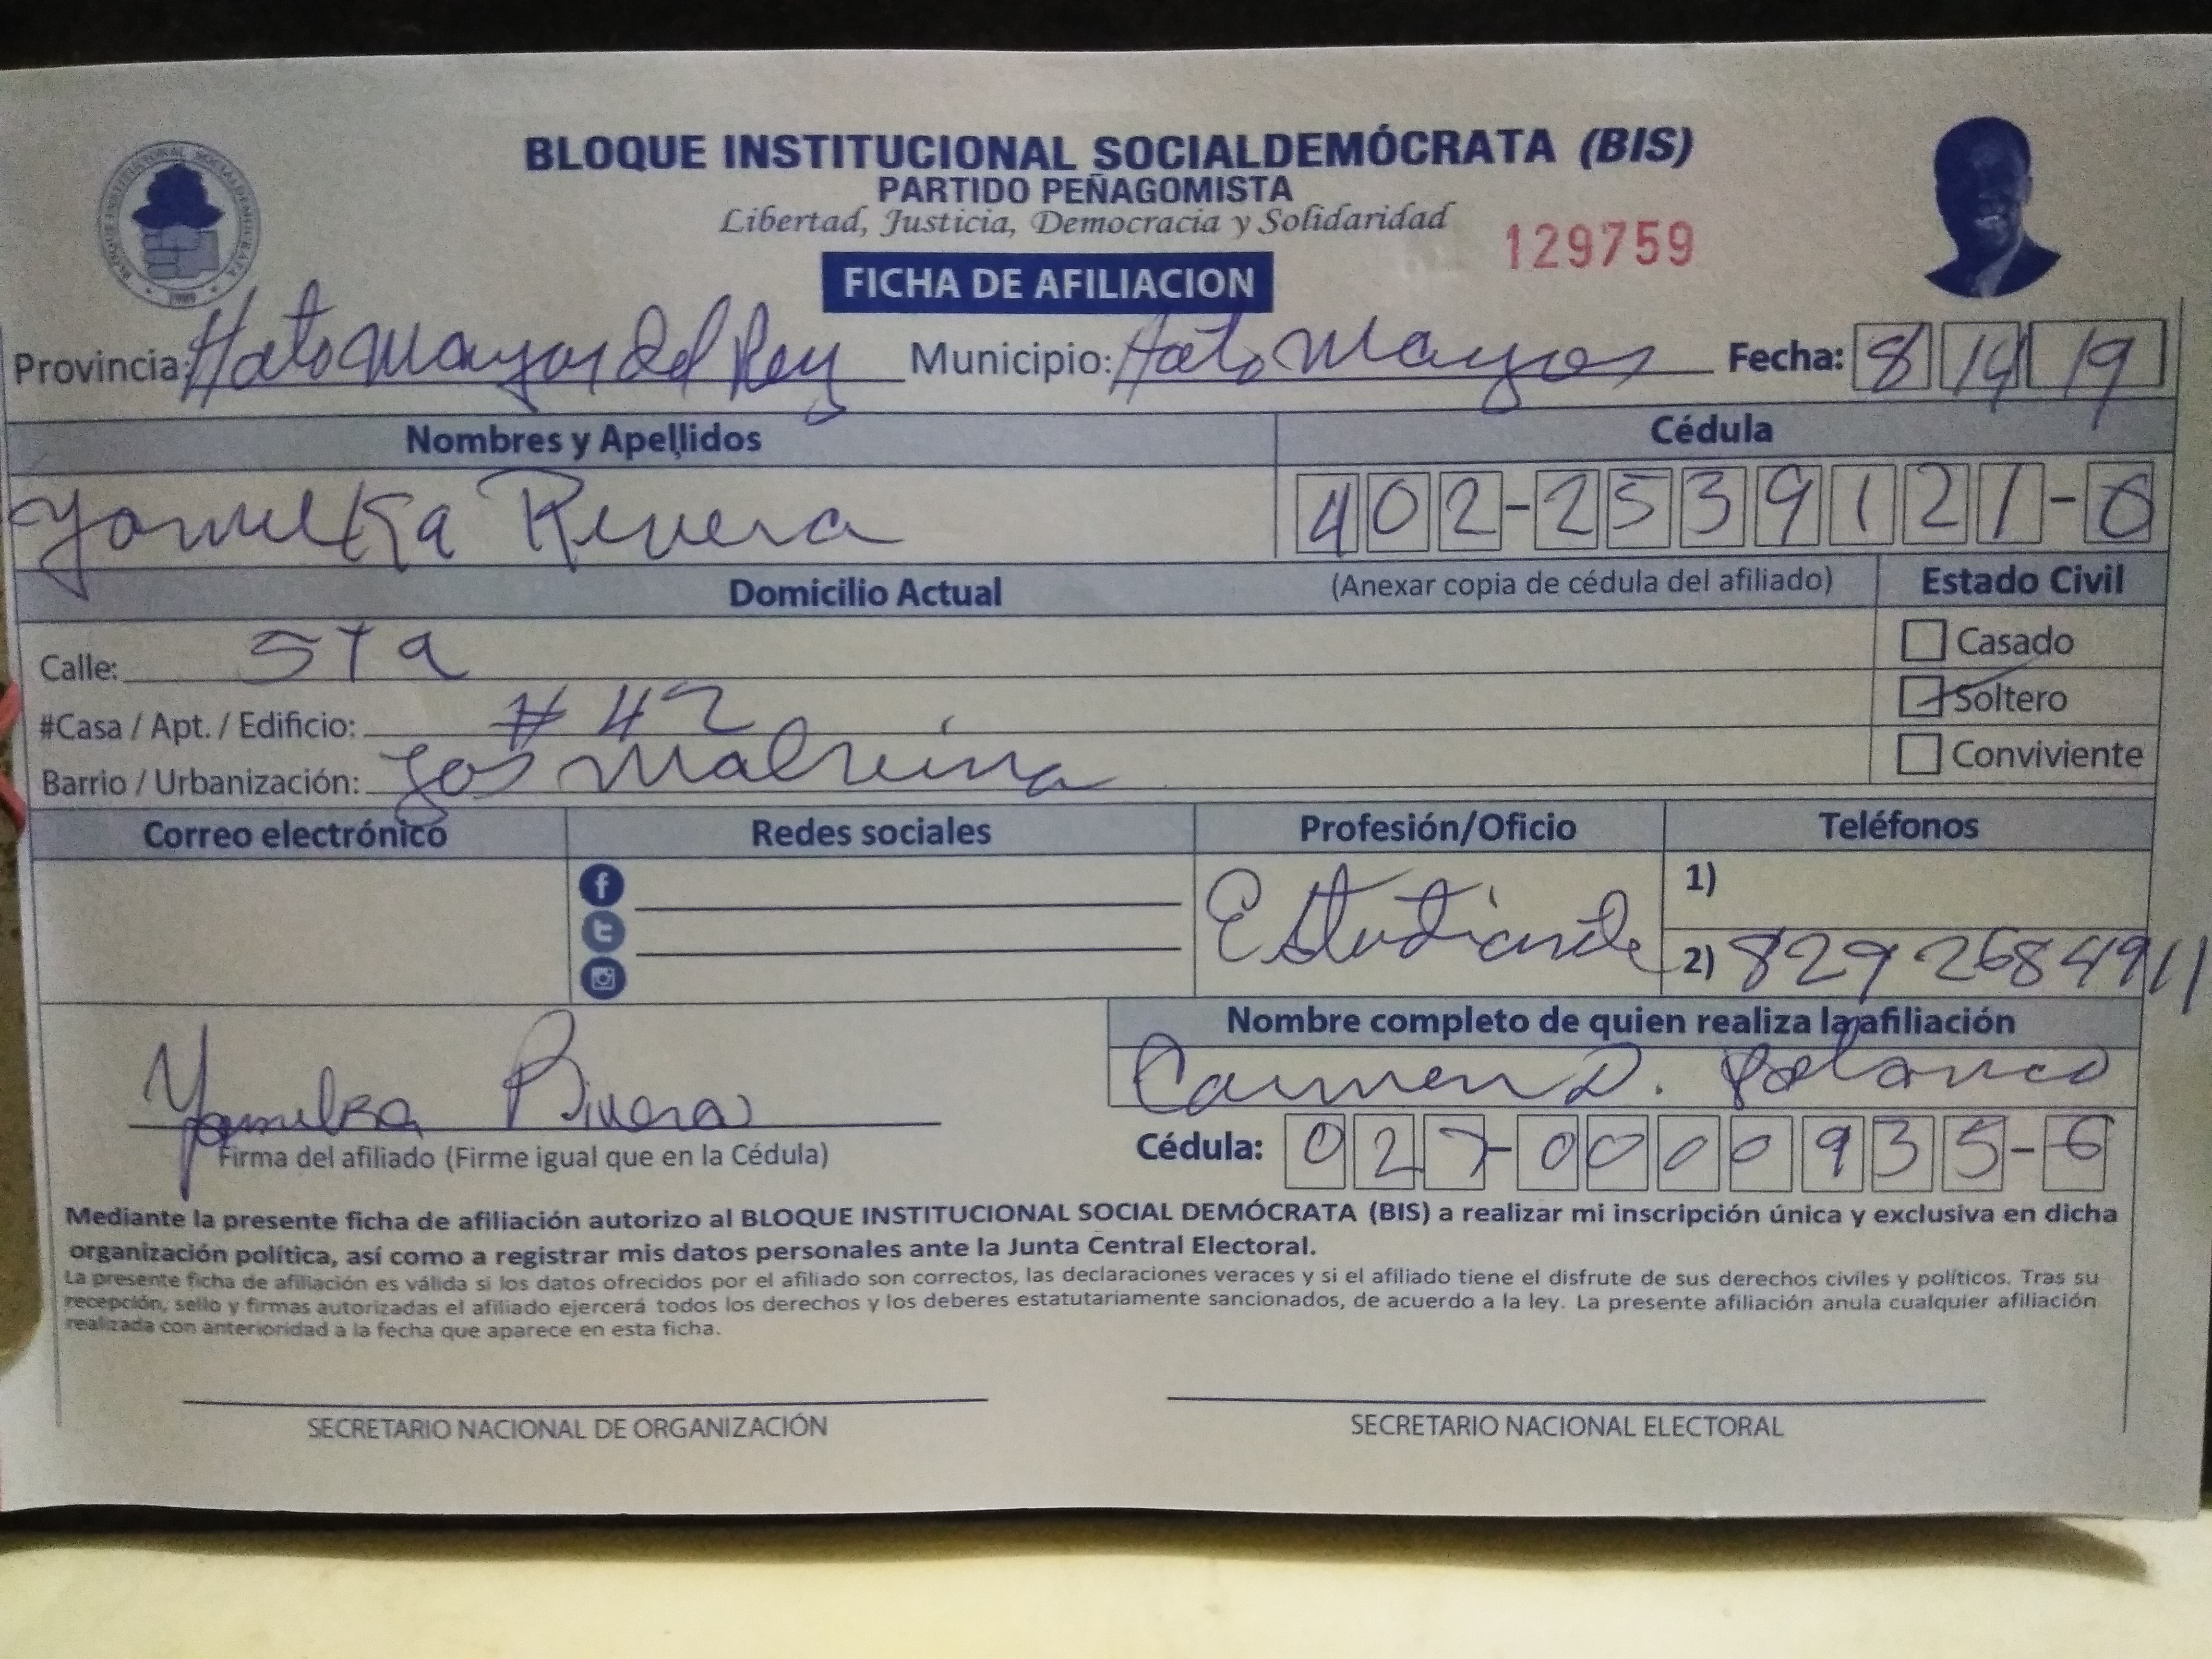 BLOQUE INSTITUCIONAL SOCIALDEMÓCRATA (BIS)
PARTIDO PEÑAGOMISTA
Libertad, Justicia, Democracia y Solidaridad
129759
FICHA DE AFILIACION
Provincia: Hato Mayor del Rey Municipio: Hato Mayor Fecha: 8 14 19
Nombres y Apellidos Cédula
Yamelka Rivera 402-2539121-0
Domicilio Actual (Anexar copia de cédula del afiliado) Estado Civil
Calle: 5ta Casado
#Casa / Apt. / Edificio: # 42 Soltero
Barrio / Urbanización: Los Conviviente
Correo electrónico Redes sociales Profesión/Oficio Teléfonos
Estudiante 1)
2) 829 2684911
Nombre completo de quien realiza la afiliación
Carmen D. Polanco
Yamelka Rivera
Firma del afiliado (Firme igual que en la Cédula) Cédula: 027-0000935-6
Mediante la presente ficha de afiliación autorizo al BLOQUE INSTITUCIONAL SOCIAL DEMÓCRATA (BIS) a realizar mi inscripción única y exclusiva en dicha
organización política, así como a registrar mis datos personales ante la Junta Central Electoral.
La presente ficha de afiliación es válida si los datos ofrecidos por el afiliado son correctos, las declaraciones veraces y si el afiliado tiene el disfrute de sus derechos civiles y políticos. Tras su
recepción, sello y firmas autorizadas el afiliado ejercerá todos los derechos y los deberes estatutariamente sancionados, de acuerdo a la ley. La presente afiliación anula cualquier afiliación
realizada con anterioridad a la fecha que aparece en esta ficha.
SECRETARIO NACIONAL DE ORGANIZACIÓN SECRETARIO NACIONAL ELECTORAL